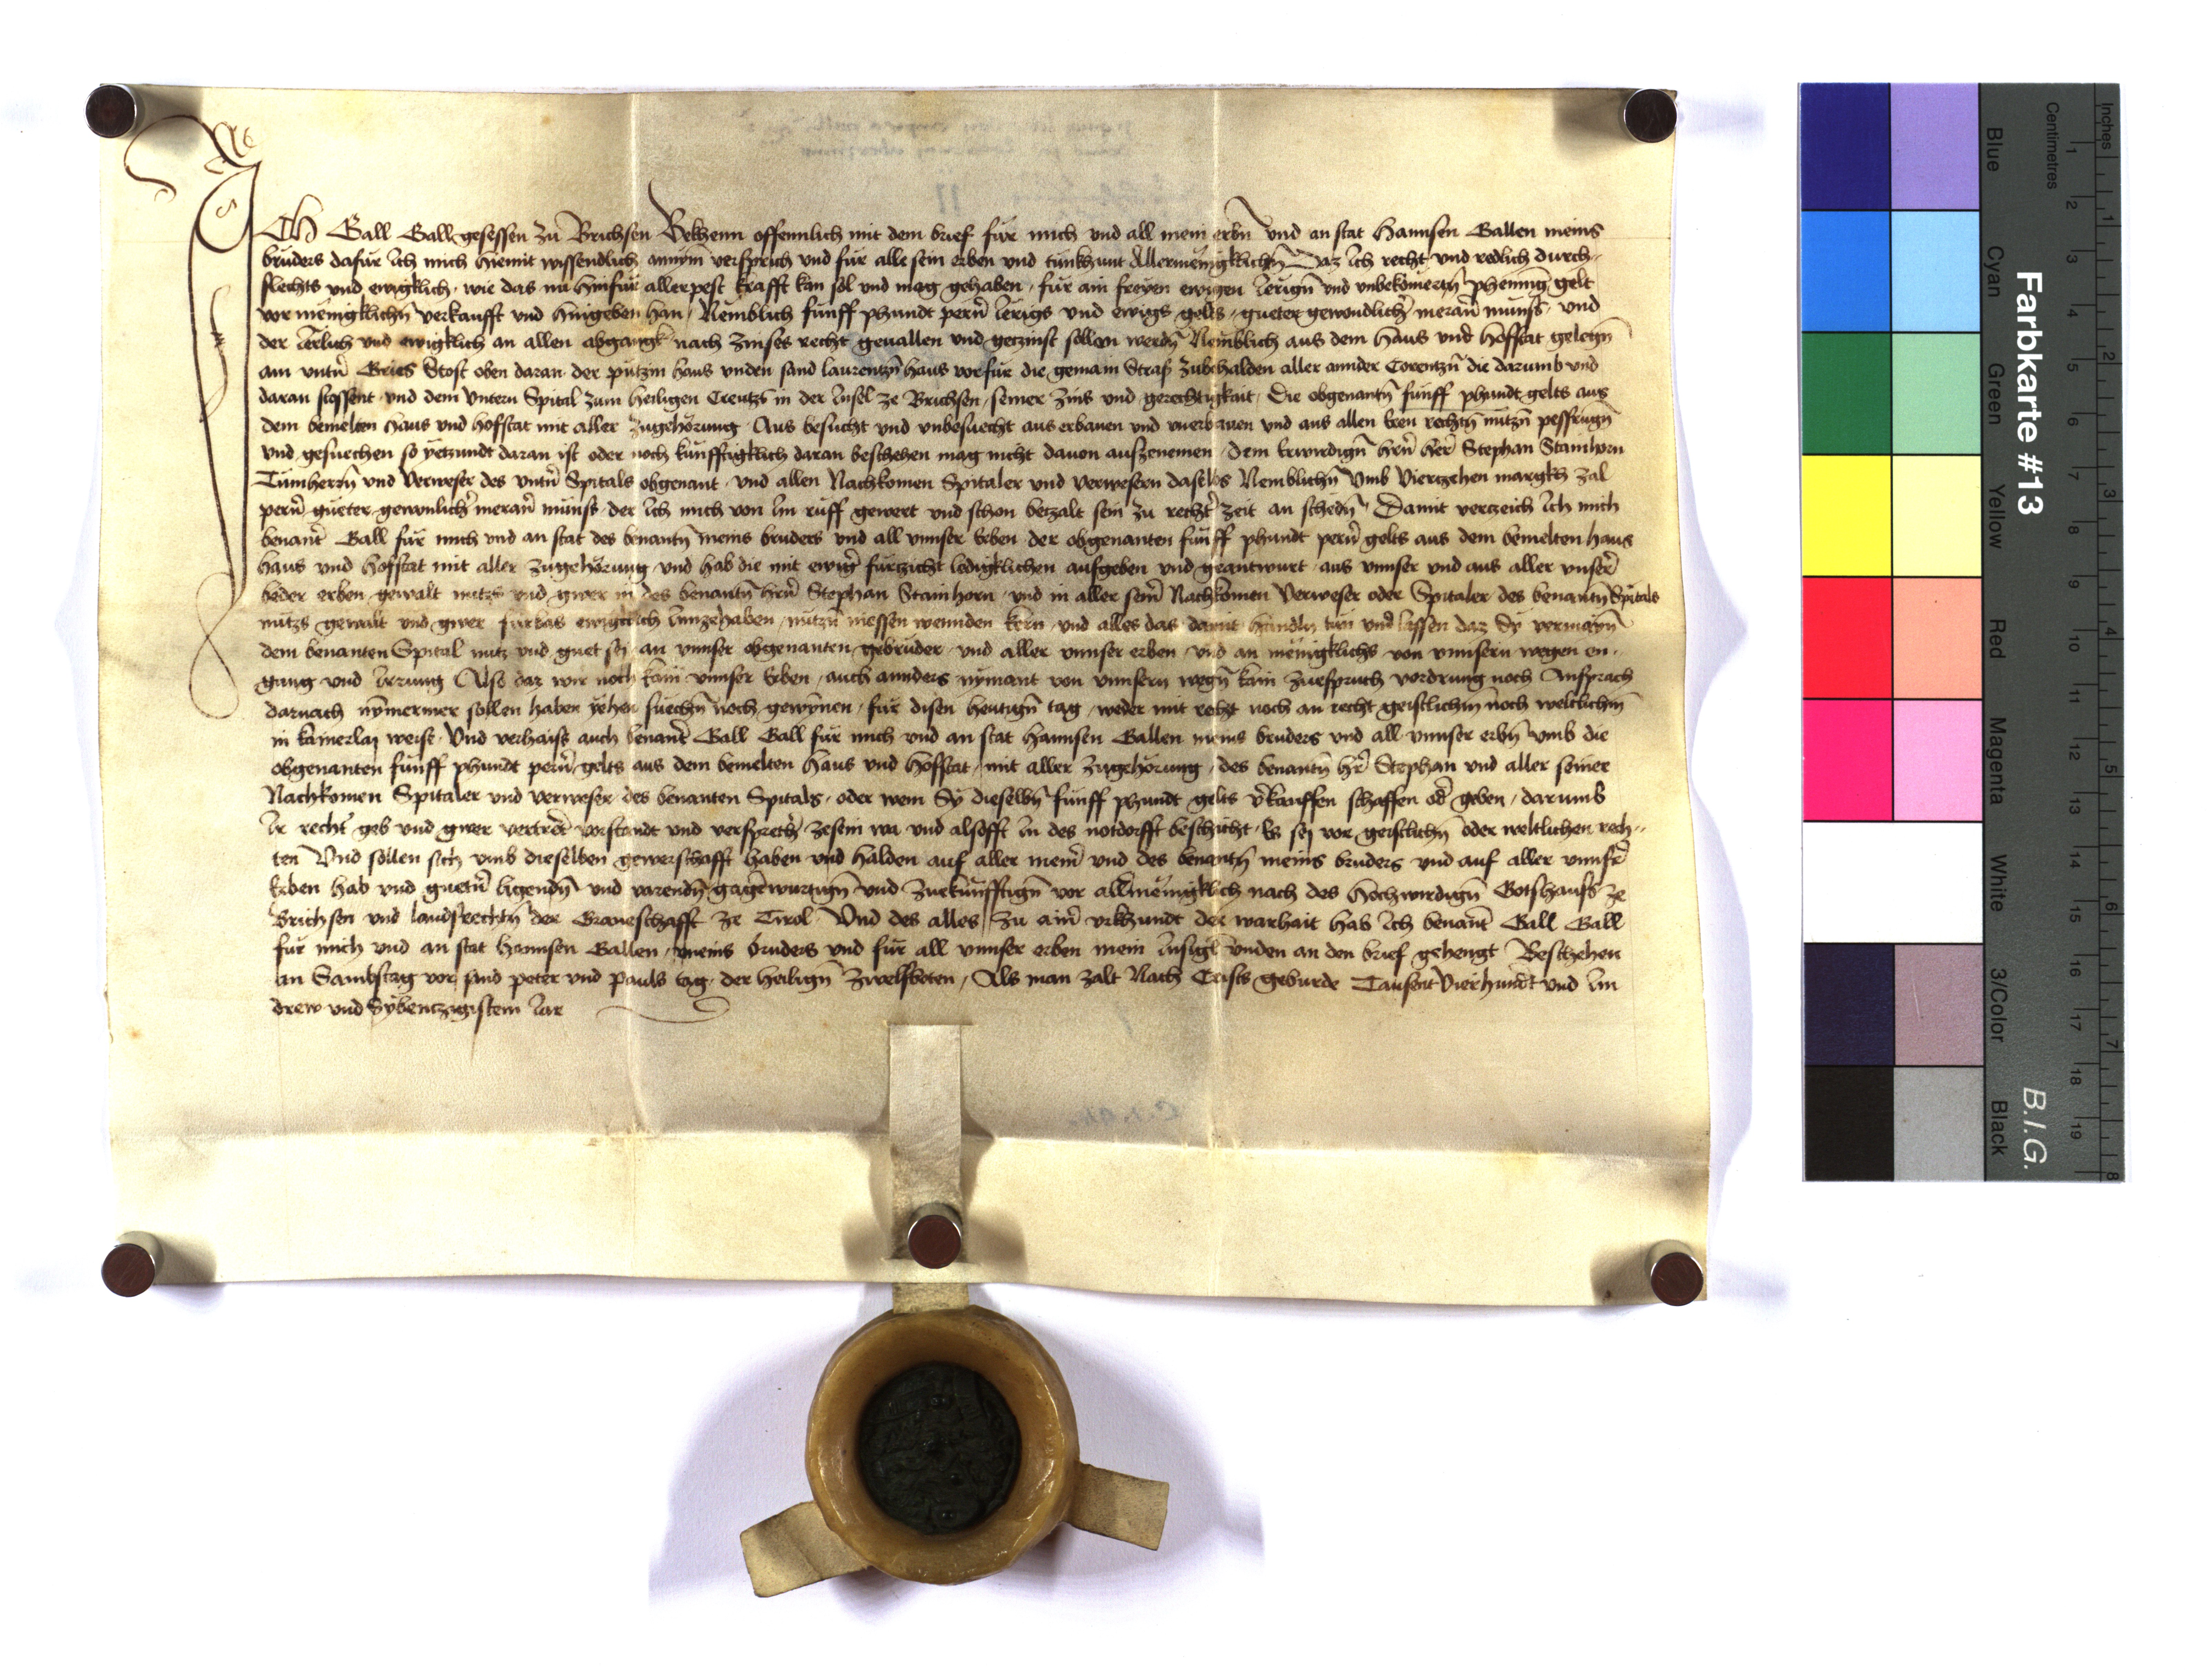 ICh Gall Gall gesessen zu Brichsen Bekhenn offennlich mit dem brief für mich und all mein erbn̄ Und an stat Hannsen Gallen meins
bruders dafür Ich mich hiemit wissendlich annym versprich vnd für alle sein erben und tun khunt Allermenigklichn̄ Daz Ich recht vnd redlich durch-
slechts vnd ewigklich wie das nu hinfür allerpest krafft kan sol vnd mag gehaben für ain freyen ewigen Ierign̄ vnd vnbekomertn̄ phennig gelt
vor menigklichn̄ verkaufft vnd hingeben han Nemblich funff phundt pern̄ Ierigs vnd ewigs gelts gueter gewondlichr̄ meran̄ munss vnd
der Ierlich vnd ewigklich an allen abgangk nach zinses recht geuallen vnd getzinst sollen werdn̄ Nemblich aus dem Haus vnd Hofstat gelegn̄
am vntn̄ Gries Stost oben daran der putzin haus vnden sand laurentzn̄ haus vorfür die gemain Straß zubehalden aller annder Corentzn̄ die darumb vnd
daran stossent vnd dem Vntern Spital zum heiligen Creutz in der Insel ze Brichsen seiner zins vnd gerechtigkait Die obgenantn̄ funff phundt gelts aus
dem bemelten Haus vnd hofstat mit aller zugehörung Aus besucht vnd vnbesuecht aus erbauen vnd vnerbauen vnd aus allen Iren rechtn̄ nutzn̄ pessrugn̄
vnd gesuechen so yetzundt daran ist oder noch kunfftigklich daran beschehen mag nicht dauon auszenemen Dem Erwirdign̄ hern̄ her Stephan Stainhorn
Tumherrn̄ vnd Verweser des vntn̄ Spitals obgenant vnd allen Nachkomen Spitaler vnd verwesern daselbs Nemblichn̄ Vmb Viertzehen margkh zal
pern̄ gueter gewonlichr̄ meran̄ munss der Ich mich von Im ruff gewert vnd schon betzalt sein zu rechtr̄ zeit an schedn̄ Damit verczeich Ich mich
benantr̄ Gall für mich vnd an stat des benantn̄ meins bruders vnd all vnnser Erben der obgenanten funff phundt pern̄ gelts aus dem bemelten haus
haus vnd hofstat mit aller zugehörung vnd hab die mit ewigr̄ fürzicht ledigklichen aufgeben vnd geantwurt aus vnnser vnd aus aller vnserr̄
beder erben gewalt nutz vnd gwer in des benantn̄ hrn̄ Stephan Stainhorn vnd in aller seinr̄ Nachkomen Verweser oder Spitaler des benantn̄ Spitals
nutzs gewalt vnd gwer fürbas ewigklich Innzehaben nutzn̄ niessen wennden kern vnd alles das damit hanndln tun vnd lassen daz Sy vermainn̄
dem benanten Spital nutz vnd guet sey an vnnser obgenanten gebruder vnd aller vnnser erben vnd an menigklichs von vnnsern wegen en-
gang vnd Irrung Also daz wir noch kain vnnser Erben auch annders nymant von vnnsern wegn̄ kain zuespruch vordrung noch Ansprach
darnach nymermer sollen haben Iehen suechn̄ noch gewynnen für disen heutign̄ tag weder mit recht noch an recht geistlichn̄ noch weltlichn̄
in kainerlay weise Vnd verhaiss auch benantr̄ Gall Gall für mich vnd an stat Hannsen Gallen meins bruders vnd all vnnser erbn̄ vmb die
obgenanten funff phundt pern̄ gelts aus dem bemelten Haus vnd Hofstat mit aller zugehörung des benantn̄ hr̄ Stephan vnd aller seiner
Nachkomen Spitaler vnd verweser des benanten Spitals oder wem Sy dieselbn̄ funff phundt gelts vr̄kauffen schaffen odr̄ geben darumb
Ir recht geb vnd gwer vertretr̄ vorstandt vnd versprechr̄ zesein wa vnd alsofft In des notdorfft beschicht Es sey vor geistlichn̄ oder weltlichen rech-
ten Vnd sollen sich vmb dieselben gewerschafft haben vnd halden auf aller meinr̄ vnd des benantn̄ meins bruders vnd auf aller vnnsrr̄
Erben hab vnd guetrn̄ ligendn̄ vnd varendn̄ gagēnwurtign̄ vnd zuekunfftign̄ vor allmenigklich nach des Hochwirdign̄ Gotshauss ze
Brichsen vnd landsrechtn̄ der Graueschafft ze Tirol Vnd des alles zu ainr̄ vrkhundt der warhait hab Ich benantr̄ Gall Gall
für mich vnd an stat Hannsen Gallen meins bruders vnd für all vnnser erben mein Insigl vnden an den brief gehengt Beschehen
an Sambstag vor sand peter vnd pauls tag der heilign̄ zwelfboten Als man zalt Nach Crists geburde Tausent Vierhundt vnd Im
drew vnd Sybentzigistem Iar
Farbkarte #13
B.I.G.
Inches
Centimetres
1 2 3 4 5 6 7 8
1 2 3 4 5 6 7 8 9 10 11 12 13 14 15 16 17 18 19
Blue Cyan Green Yellow Red Magenta White 3/Color Black